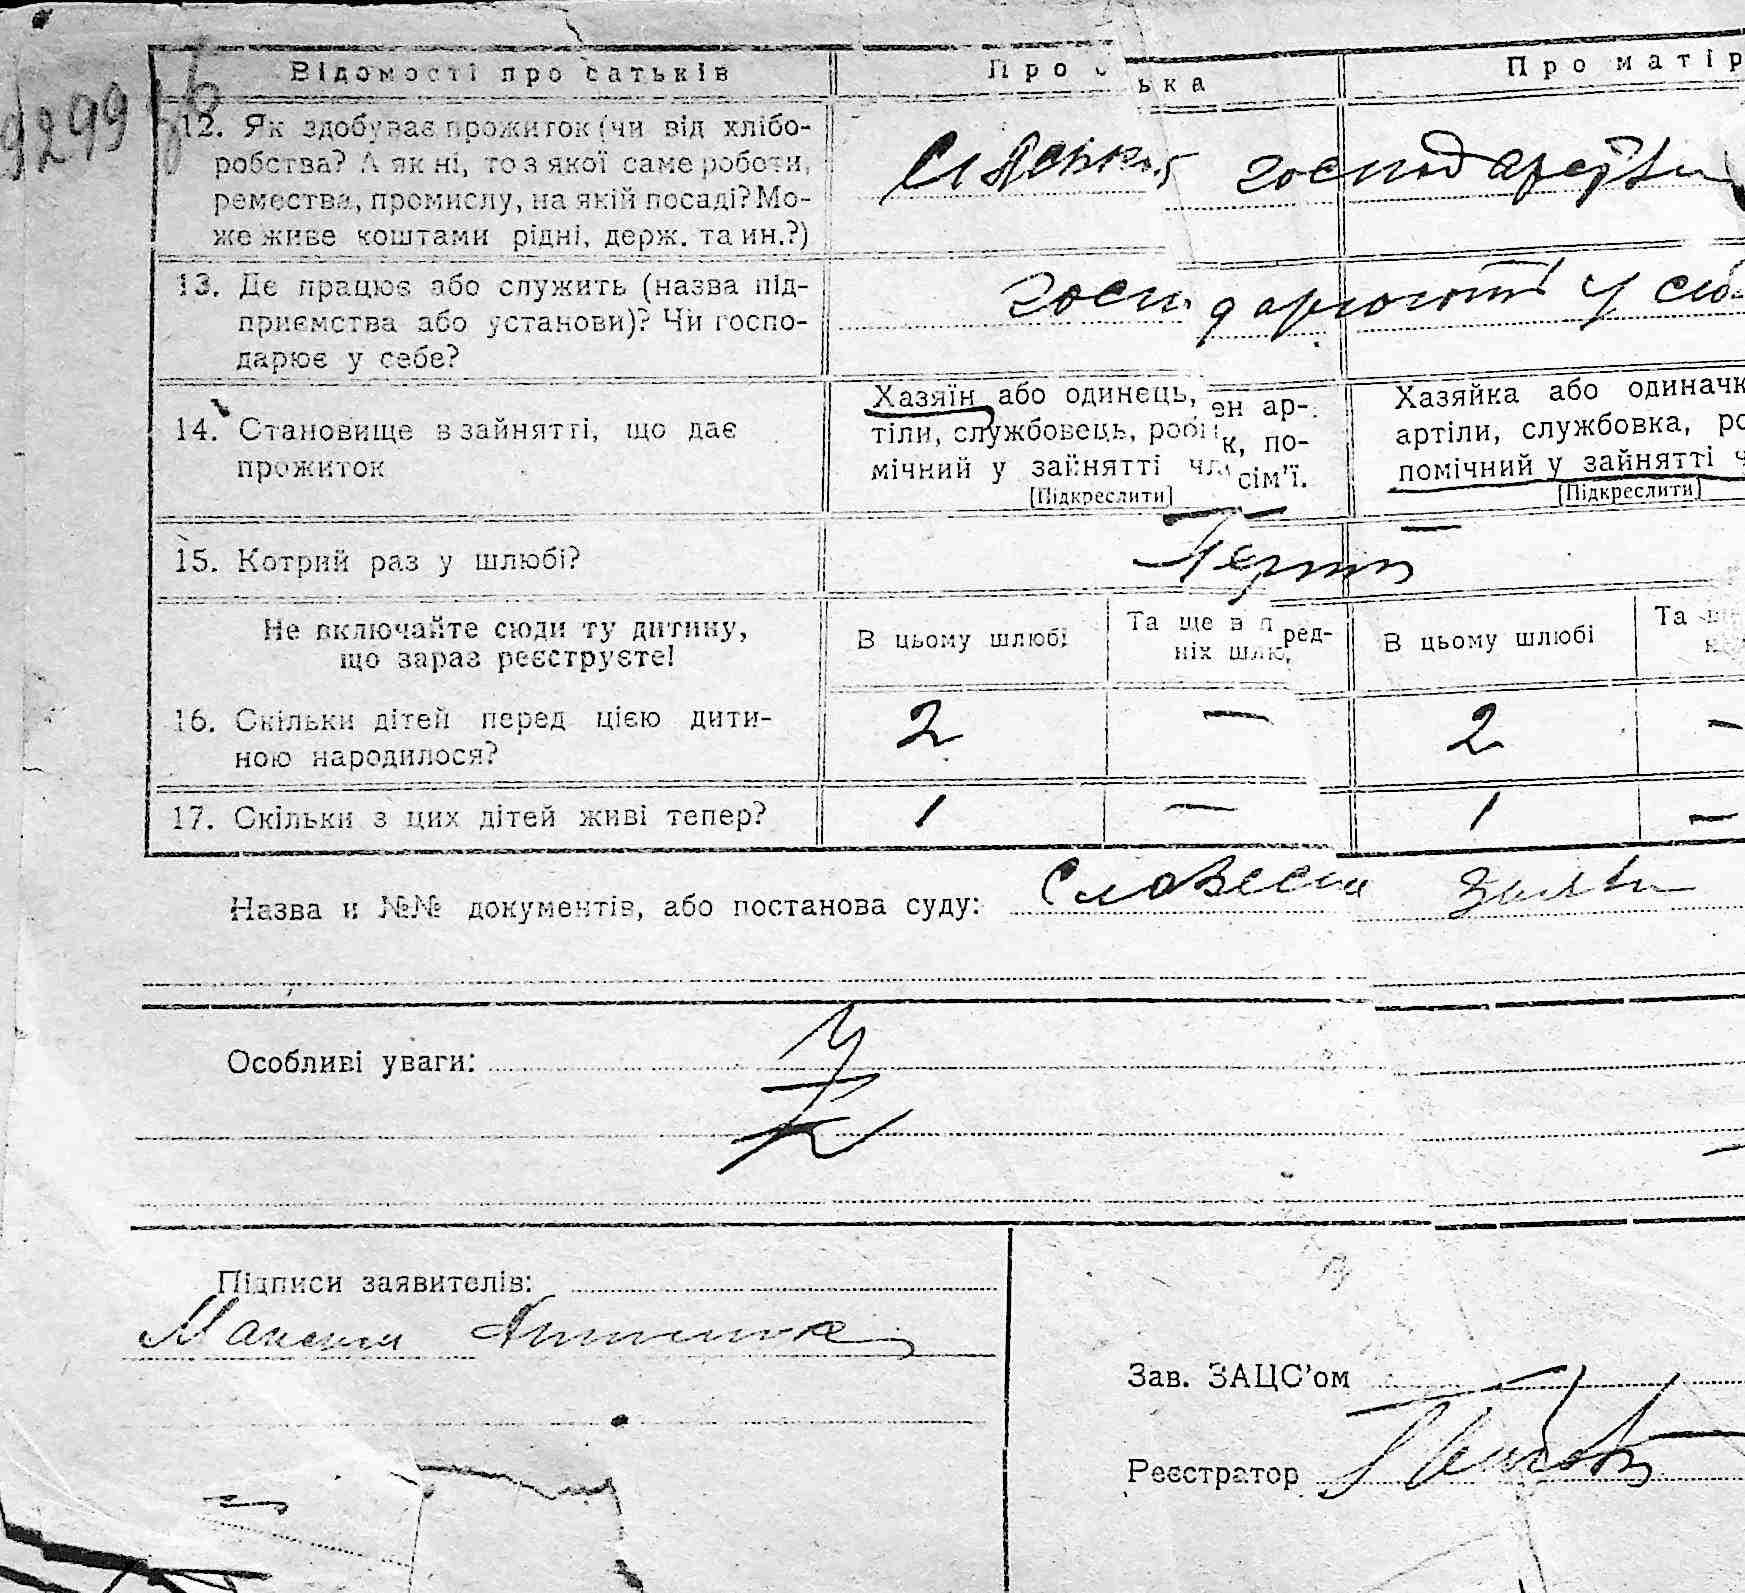 Відомості про батьків Про батька Про матір
92996
12. Як здобуває прожиток (чи від хлібо-
робства? А як ні, то з якої саме роботи,
ремества, промислу, на якій посаді? Мо-
же живе коштами рідні, держ. та ин.?)
13. Де працює або служить (назва під-
приємства або установи)? Чи госпо-
дарює у себе?
господарюють у себе
14. Становище в зайнятті, що дає
прожиток
Хазяїн або одинець, ен ар-
тіли, службовець, робі к, по-
мічний у зайнятті чл сім'ї.
[Підкреслити]
Хазяйка або одиначк
артіли, службовка, ро
помічний у зайнятті ч
[Підкреслити]
15. Котрий раз у шлюбі?
Не включайте сюди ту дитину,
що зараз реєструєте!
В цьому шлюбі Та ще в п ред-
ніх шлю В цьому шлюбі Та
16. Скільки дітей перед цією дити-
ною народилося?
2 — 2 —
17. Скільки з цих дітей живі тепер? 1 — 1 —
Назва и №№ документів, або постанова суду: Словесна заява
Особливі уваги:
Підписи заявителів:
Максим
Зав. ЗАЦС'ом
Реєстратор